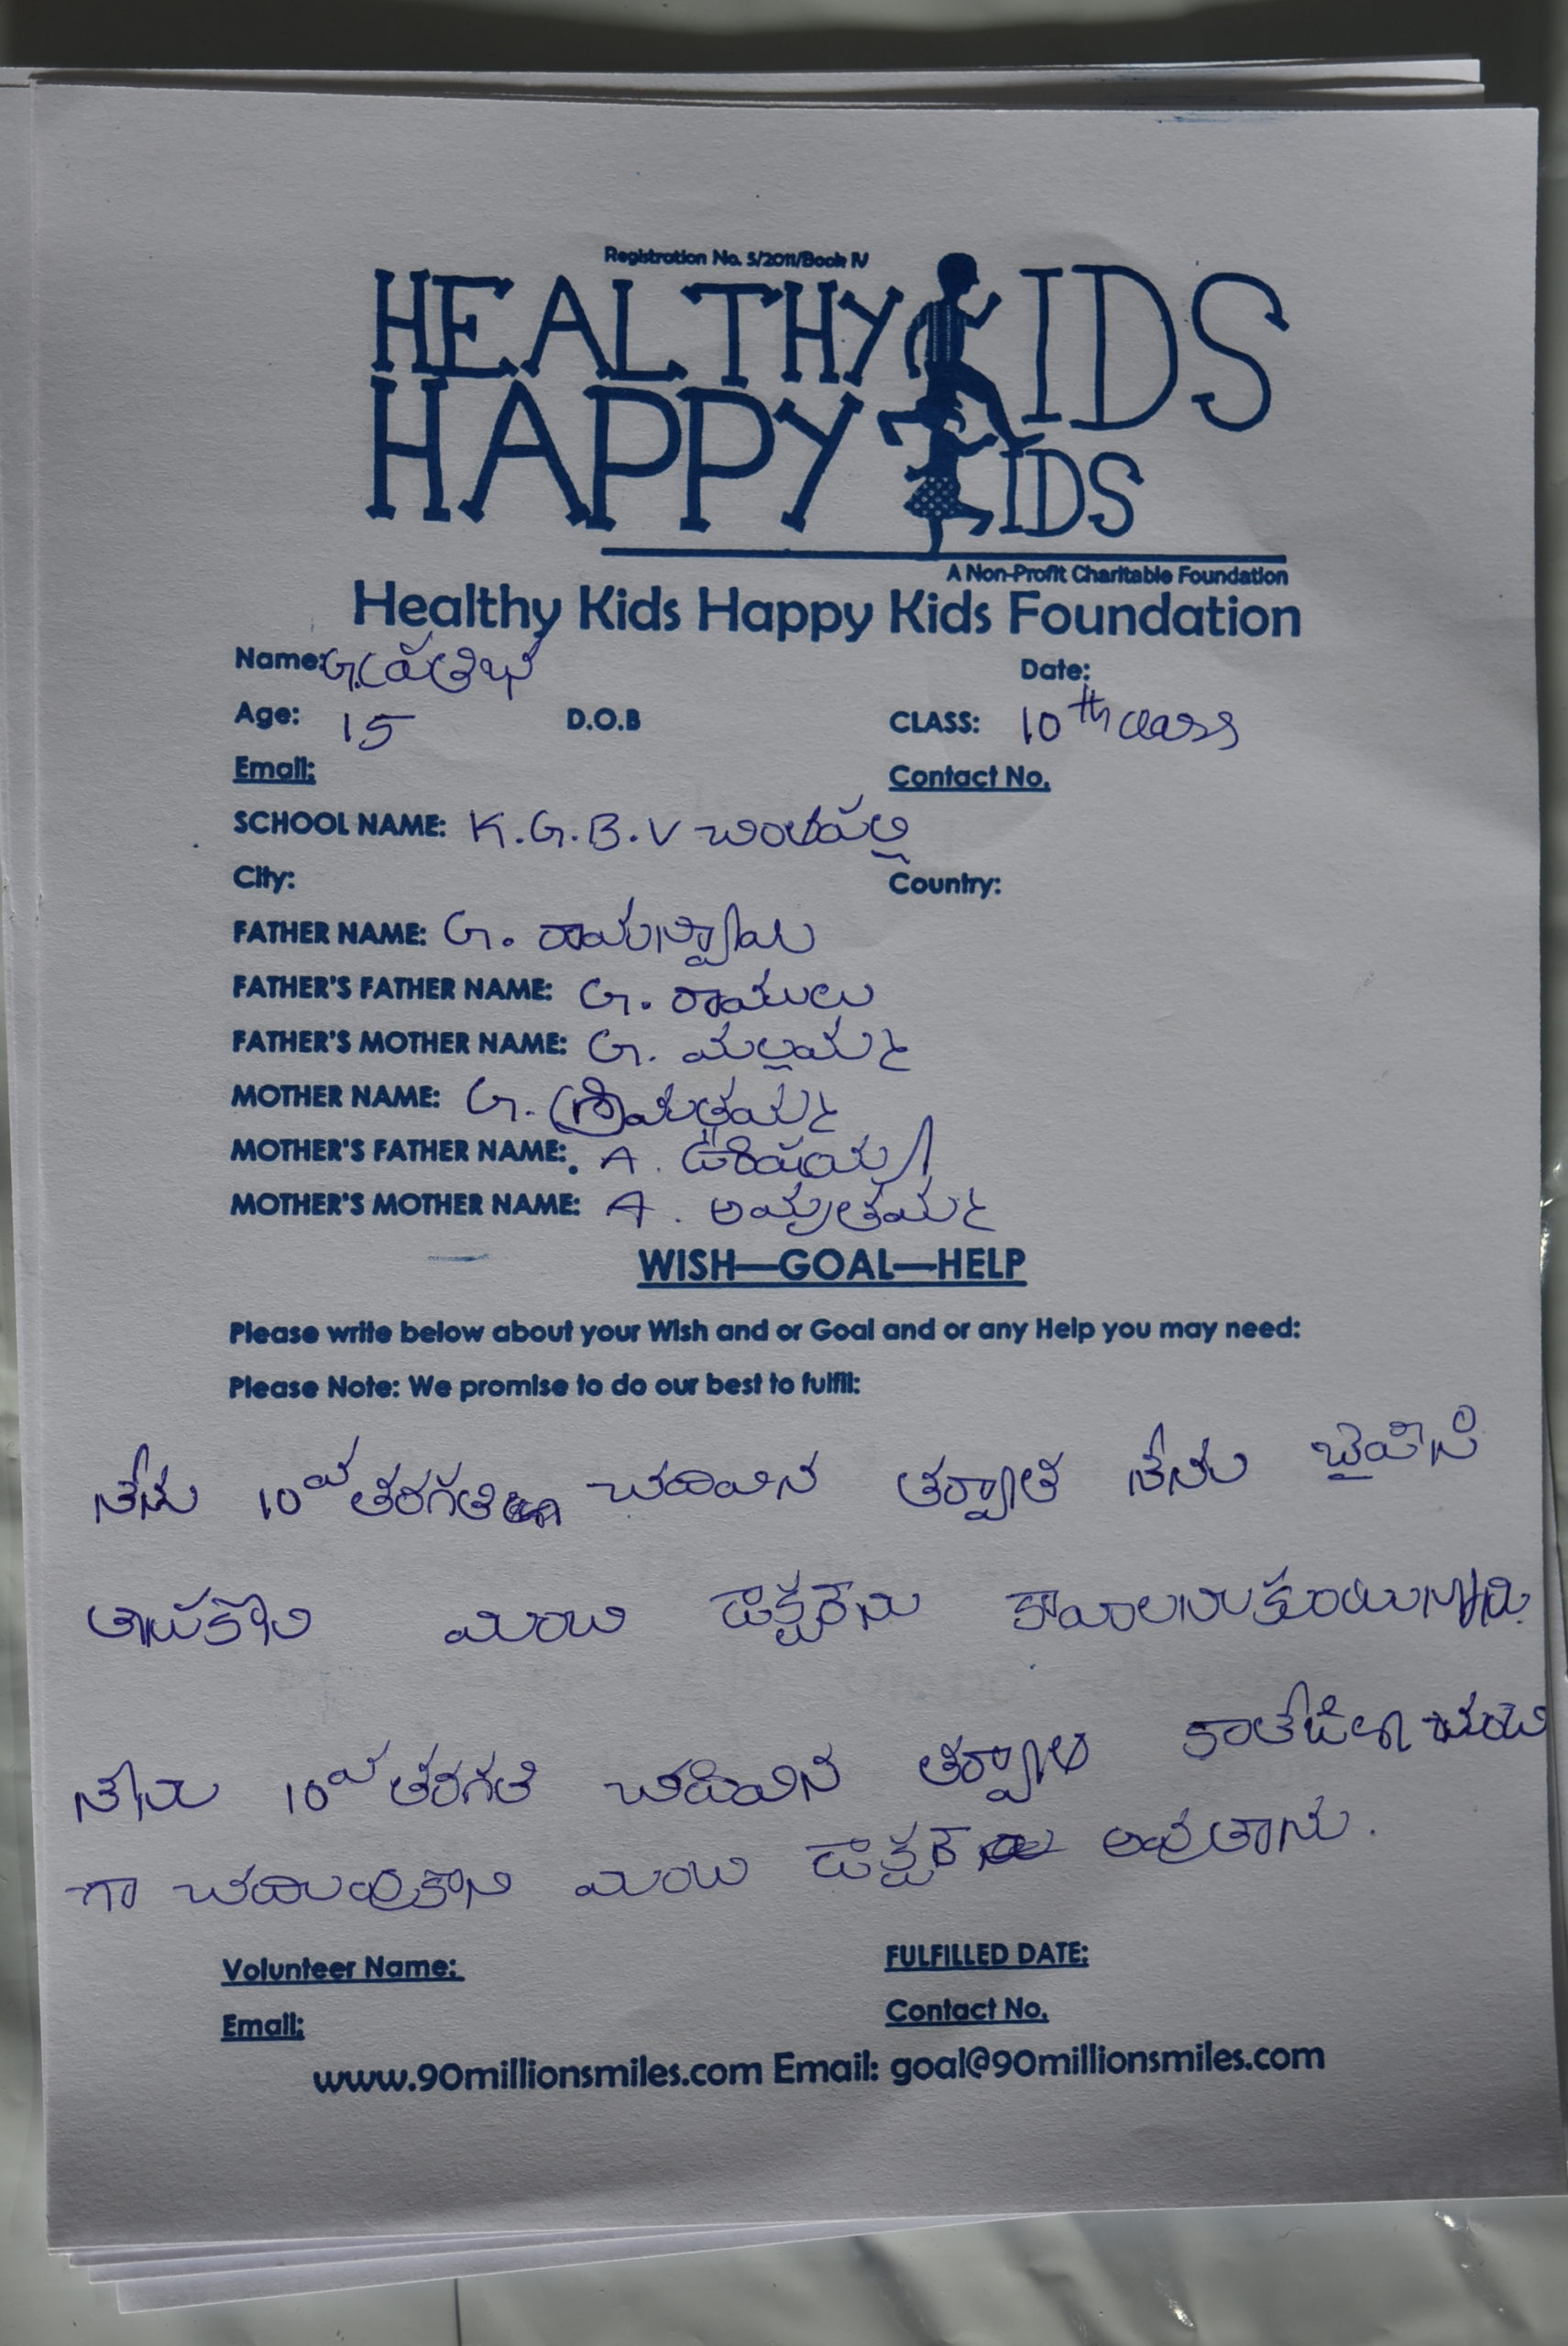 Registration No. 5/2011/Book IV
HEALTHY KIDS
HAPPY KIDS
A Non-Profit Charitable Foundation
Healthy Kids Happy Kids Foundation
Name: G. Date:
Age: 15 D.O.B CLASS: 10th class
Email: Contact No.
SCHOOL NAME: K.G.B.V
City: Country:
FATHER NAME: G.
FATHER'S FATHER NAME: G. రాములు
FATHER'S MOTHER NAME: G. మల్లమ్మ
MOTHER NAME: G.
MOTHER'S FATHER NAME: A.
MOTHER'S MOTHER NAME: A. అమృతమ్మ
WISH—GOAL—HELP
Please write below about your Wish and or Goal and or any Help you may need:
Please Note: We promise to do our best to fulfil:
నేను 10వ తరగతి చదివిన తర్వాత నేను బైపిసి
తీసుకొని మంచి డాక్టర్‌ను కావాలనుకుంటున్నాను.
నేను 10వ తరగతి చదివిన తర్వాత కాలేజిలో మంచి
గా చదువుకొని మంచి డాక్టర్ అవుతాను.
Volunteer Name: FULFILLED DATE:
Email: Contact No.
www.90millionsmiles.com Email: goal@90millionsmiles.com